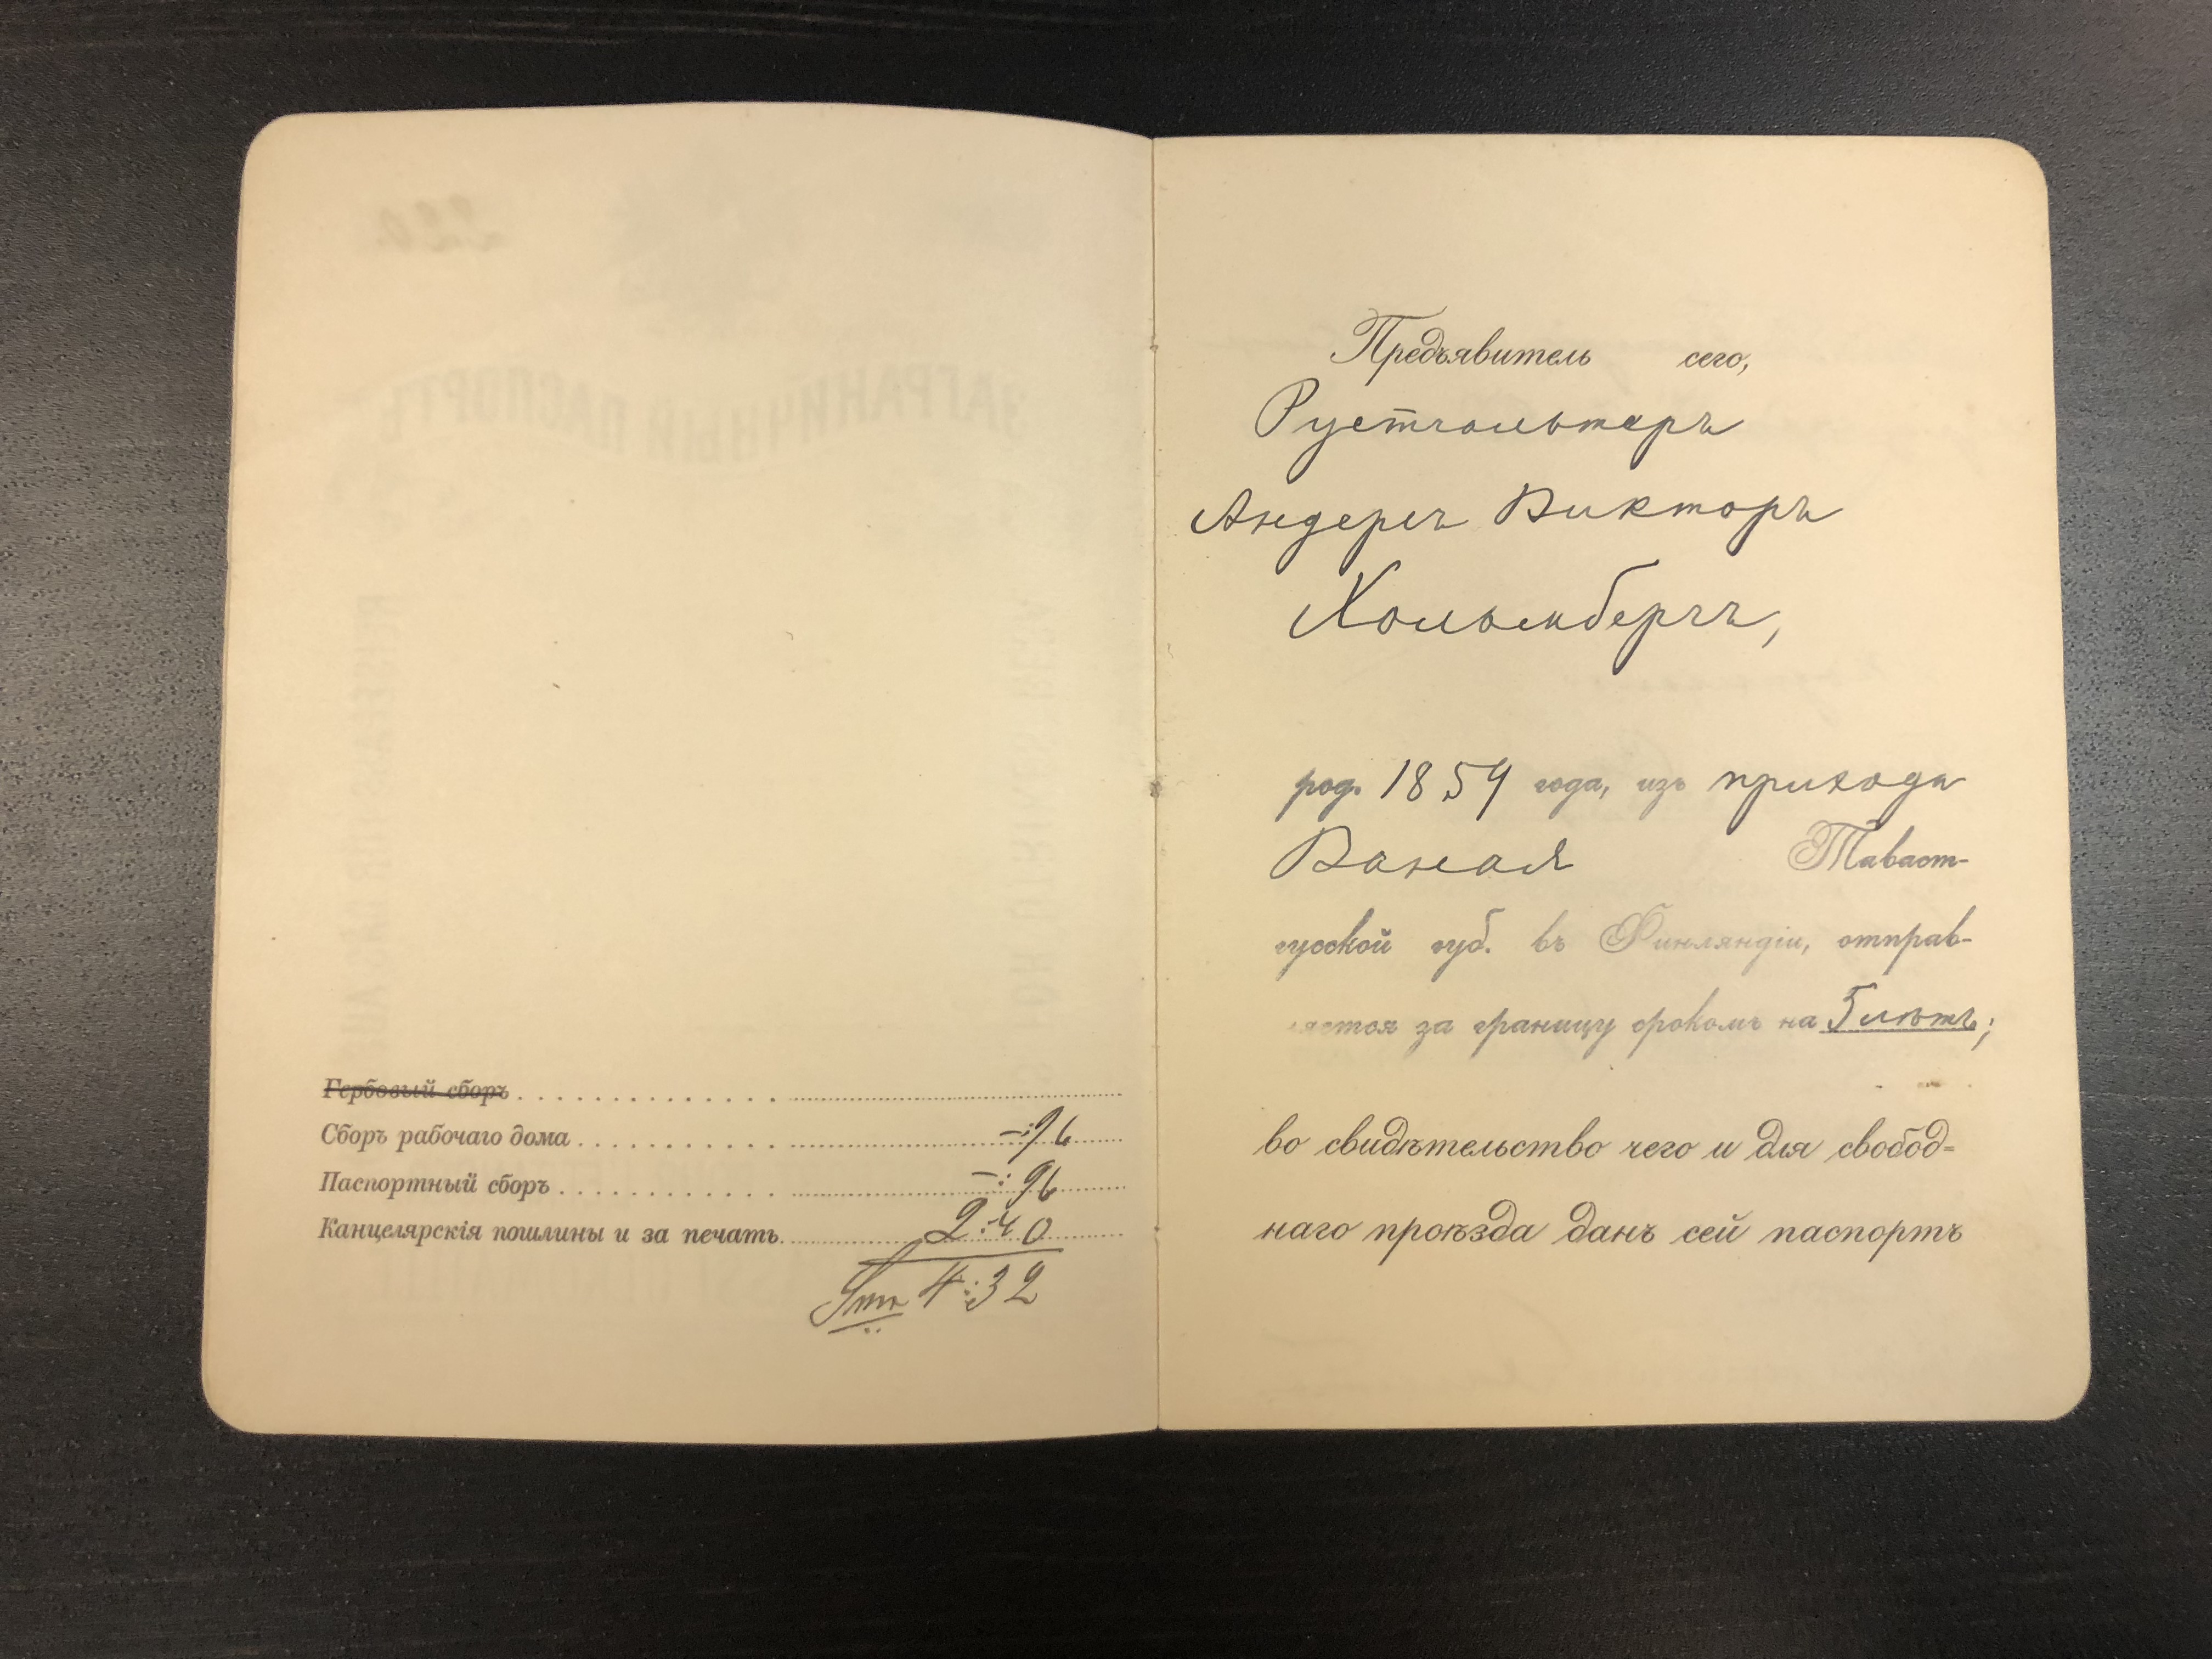 Гербовый сборъ
Сборъ рабочаго дома —:96
Паспортный сборъ —:96
Канцелярскія пошлины и за печать 2:40
Smk 4:32
Предъявитель сего,
Рустгольтеръ
Андерсъ Викторъ
Хольмбергъ,
род. 1859 года, изъ прихода
Ваная Таваст-
гусской губ. въ Финляндіи, отправ-
ляется за границу срокомъ на 5 лѣтъ;
во свидѣтельство чего и для свобод=
наго проѣзда данъ сей паспортъ